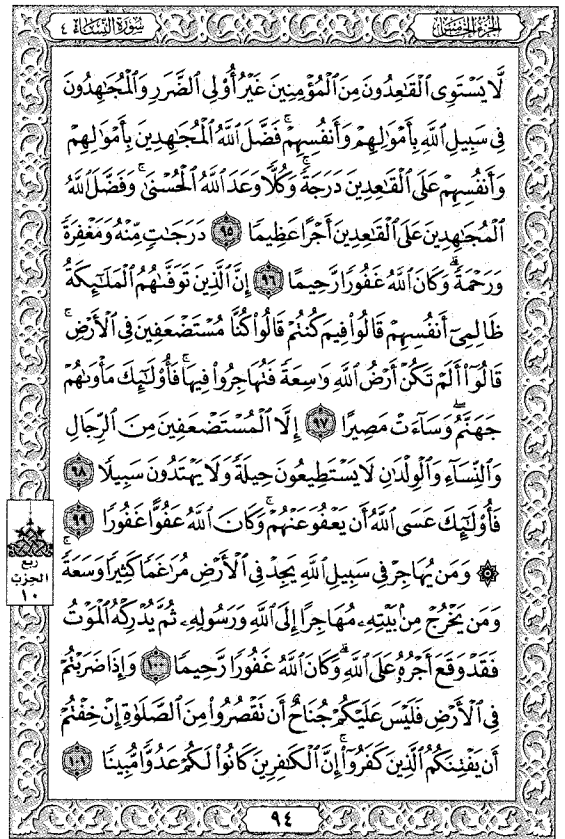 الجزء الخامس
سورة النساء ٤
لَّا يَسْتَوِى الْقَاعِدُونَ مِنَ الْمُؤْمِنِينَ غَيْرُ أُوْلِى الضَّرَرِ وَالْمُجَاهِدُونَ
فِى سَبِيلِ اللَّهِ بِأَمْوَالِهِمْ وَأَنفُسِهِمْ ۚ فَضَّلَ اللَّهُ الْمُجَاهِدِينَ بِأَمْوَالِهِمْ
وَأَنفُسِهِمْ عَلَى الْقَاعِدِينَ دَرَجَةً ۚ وَكُلًّا وَعَدَ اللَّهُ الْحُسْنَىٰ ۚ وَفَضَّلَ اللَّهُ
الْمُجَاهِدِينَ عَلَى الْقَاعِدِينَ أَجْرًا عَظِيمًا ٩٥ دَرَجَاتٍ مِّنْهُ وَمَغْفِرَةً
وَرَحْمَةً ۚ وَكَانَ اللَّهُ غَفُورًا رَّحِيمًا ٩٦ إِنَّ الَّذِينَ تَوَفَّاهُمُ الْمَلَائِكَةُ
ظَالِمِىٓ أَنفُسِهِمْ قَالُوا فِيمَ كُنتُمْ قَالُوا كُنَّا مُسْتَضْعَفِينَ فِى الْأَرْضِ ۚ
قَالُوٓا أَلَمْ تَكُنْ أَرْضُ اللَّهِ وَاسِعَةً فَتُهَاجِرُوا فِيهَا ۚ فَأُوْلَٰٓئِكَ مَأْوَاهُمْ
جَهَنَّمُ ۖ وَسَآءَتْ مَصِيرًا ٩٧ إِلَّا الْمُسْتَضْعَفِينَ مِنَ الرِّجَالِ
وَالنِّسَآءِ وَالْوِلْدَانِ لَا يَسْتَطِيعُونَ حِيلَةً وَلَا يَهْتَدُونَ سَبِيلًا ٩٨
فَأُوْلَٰٓئِكَ عَسَى اللَّهُ أَن يَعْفُوَ عَنْهُمْ ۚ وَكَانَ اللَّهُ عَفُوًّا غَفُورًا ٩٩
۞ وَمَن يُهَاجِرْ فِى سَبِيلِ اللَّهِ يَجِدْ فِى الْأَرْضِ مُرَاغَمًا كَثِيرًا وَسَعَةً ۚ
وَمَن يَخْرُجْ مِنۢ بَيْتِهِۦ مُهَاجِرًا إِلَى اللَّهِ وَرَسُولِهِۦ ثُمَّ يُدْرِكْهُ الْمَوْتُ
فَقَدْ وَقَعَ أَجْرُهُۥ عَلَى اللَّهِ ۗ وَكَانَ اللَّهُ غَفُورًا رَّحِيمًا ١٠٠ وَإِذَا ضَرَبْتُمْ
فِى الْأَرْضِ فَلَيْسَ عَلَيْكُمْ جُنَاحٌ أَن تَقْصُرُوا مِنَ الصَّلَوٰةِ إِنْ خِفْتُمْ
أَن يَفْتِنَكُمُ الَّذِينَ كَفَرُوٓا ۚ إِنَّ الْكَافِرِينَ كَانُوا لَكُمْ عَدُوًّا مُّبِينًا ١٠١
ربع
الحزب
١٠
٩٤